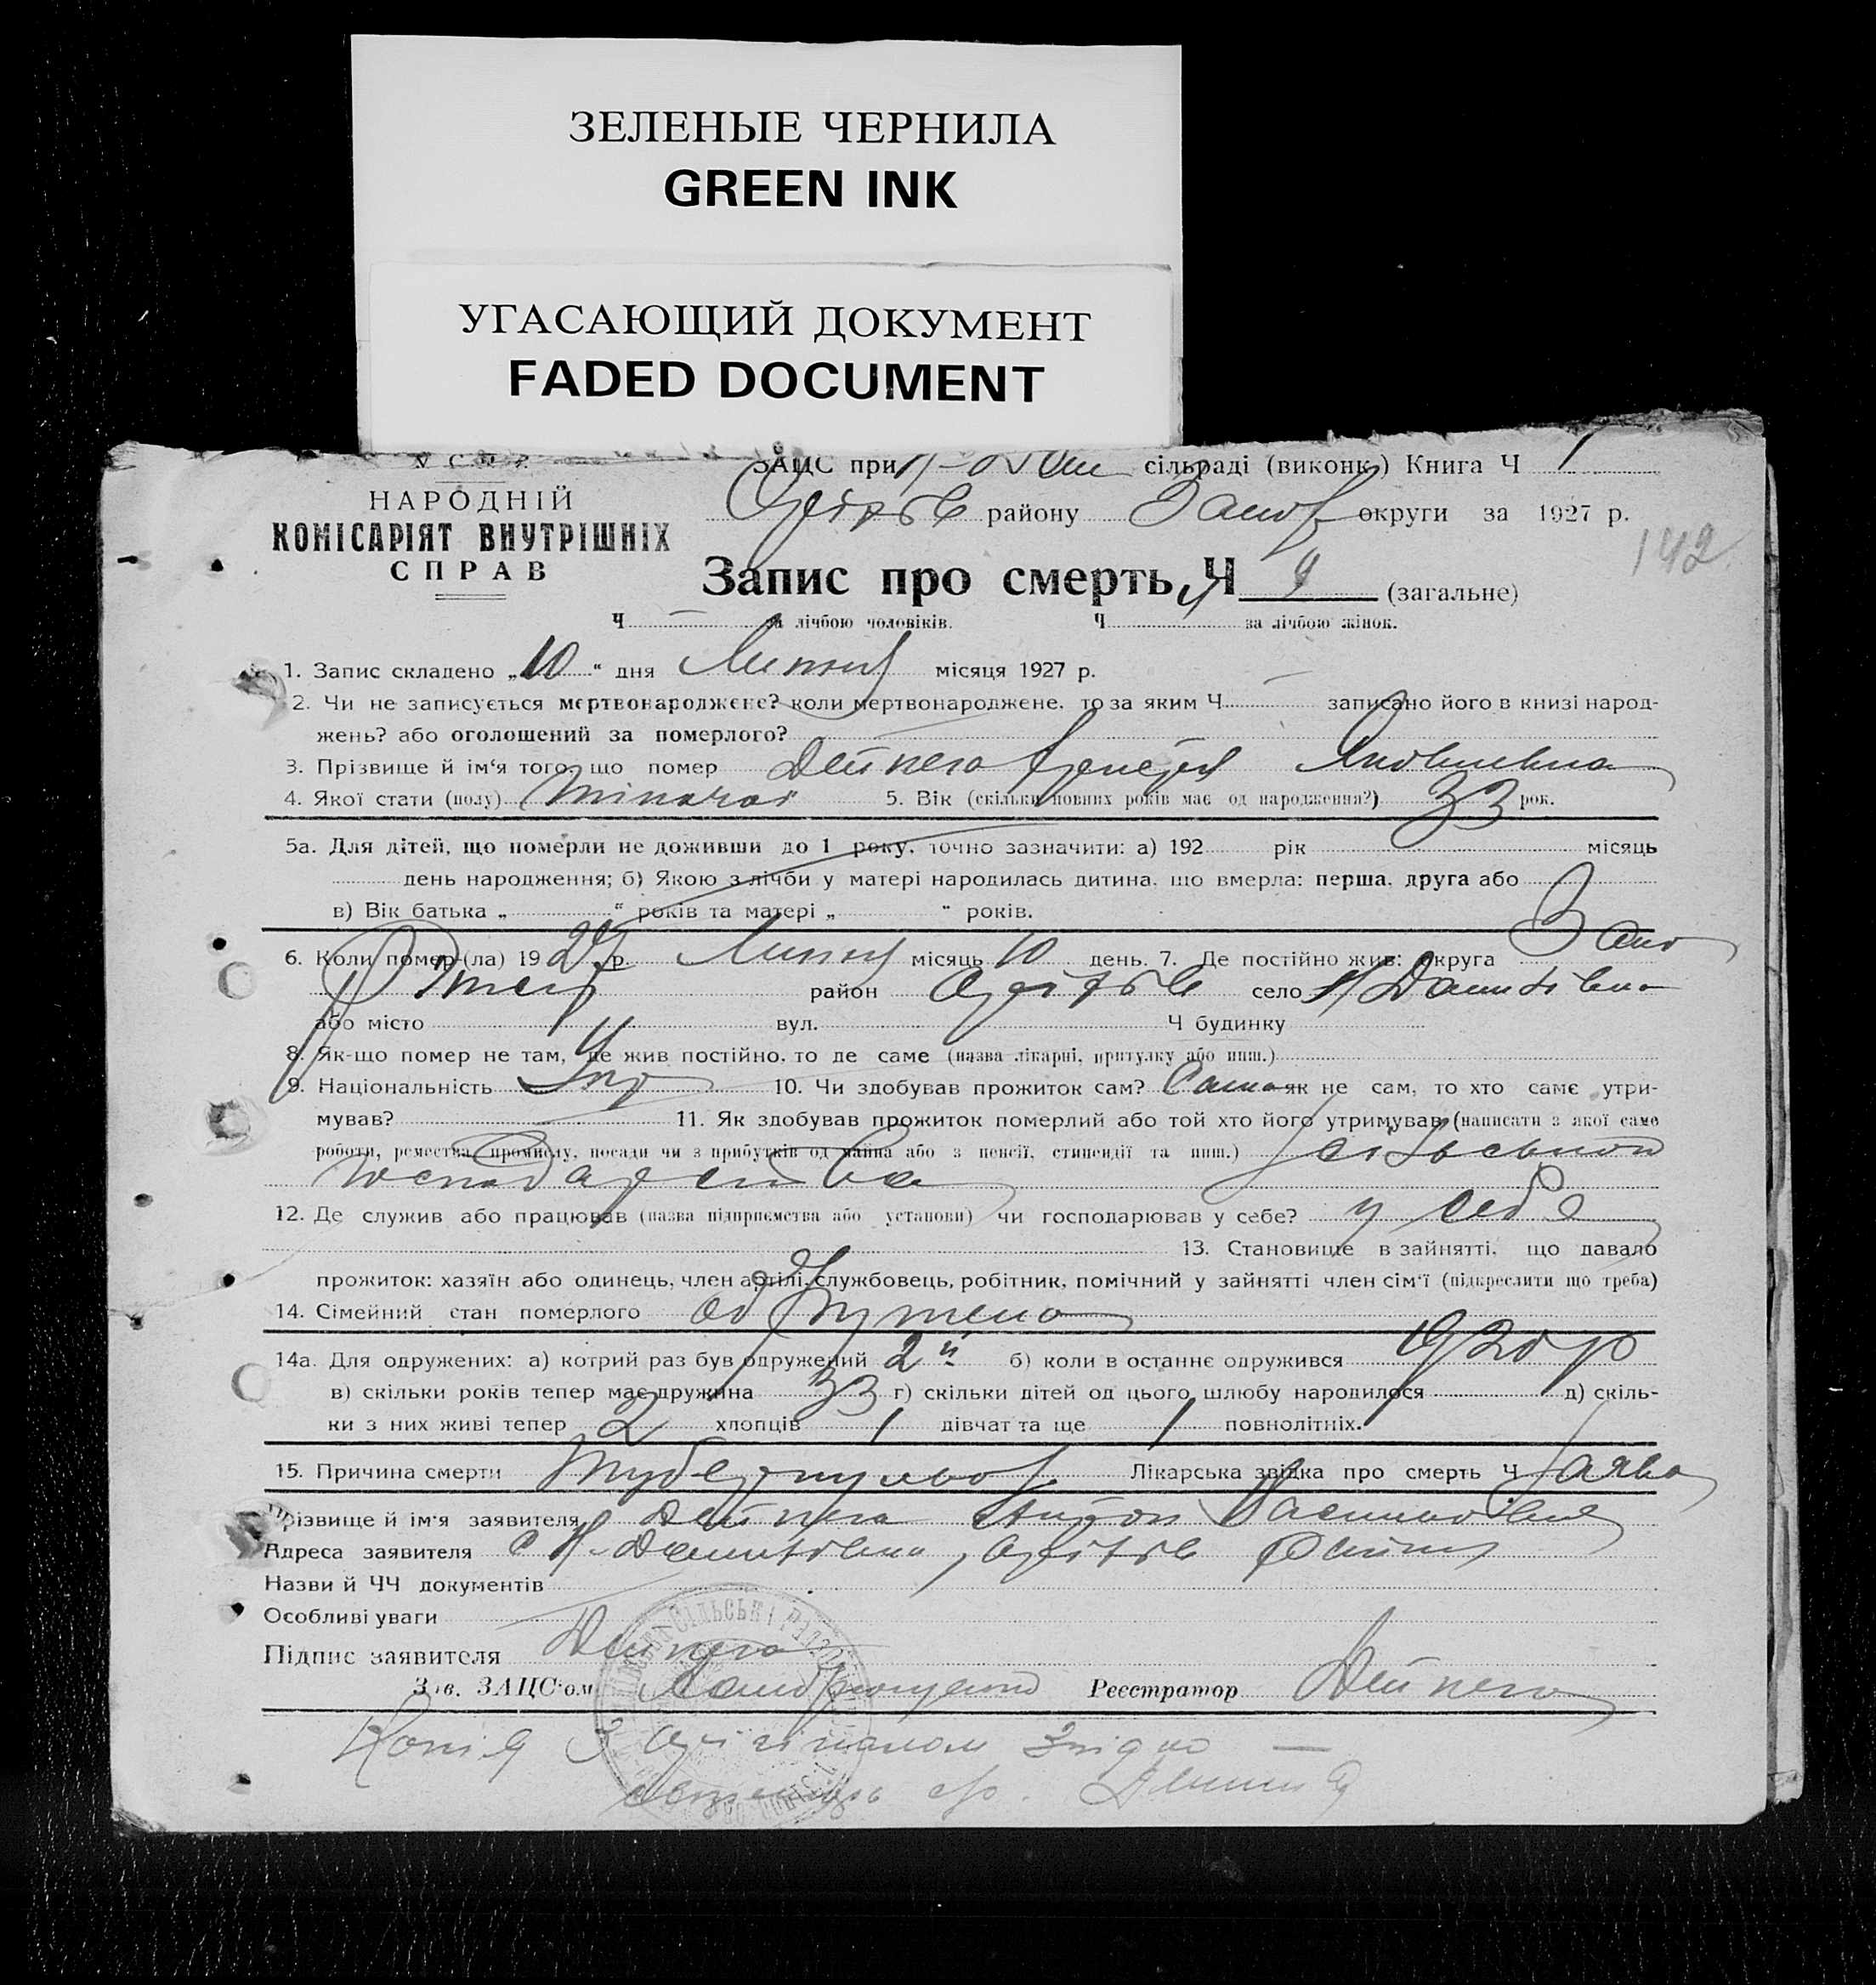 ЗЕЛЕНЫЕ ЧЕРНИЛА
GREEN INK
УГАСАЮЩИЙ ДОКУМЕНТ
FADED DOCUMENT
ЗАЦС при сільраді (виконк.) Книга Ч 1
НАРОДНІЙ
КОМІСАРІЯТ ВНУТРІШНІХ
СПРАВ
району Запор округи за 1927 р.
142
Запис про смерть, Ч 9 (загальне)
Ч — за лічбою чоловіків. Ч за лічбою жінок.
1. Запис складено „10“ дня місяця 1927 р.
2. Чи не записується мертвонароджене? коли мертвонароджене, то за яким Ч — записано його в книзі народ-
жень? або оголошений за померлого?
3. Прізвище й ім‘я того, що помер Дейнега Яковлевна
4. Якої стати (полу) жіночої 5. Вік (скільки повних років має од народження?) 33 рок.
5а. Для дітей, що померли не доживши до 1 року, точно зазначити: а) 192 рік місяць
день народження; б) Якою з лічби у матері народилась дитина, що вмерла: перша, друга або
в) Вік батька „ “ років та матері „ “ років.
6. Коли помер (ла) 1927 р. місяць 10 день. 7. Де постійно жив: округа Запо
ріжськ район село Н/Данилівка
або місто вул. Ч будинку
8. Як-що помер не там, де жив постійно, то де саме (назва лікарні, притулку або инш.)
9. Національність Укр 10. Чи здобував прожиток сам? Сама як не сам, то хто саме утри-
мував? 11. Як здобував прожиток померлий або той хто його утримував (написати з якої саме
роботи, ремества, промислу, посади чи з прибутків од майна або з пенсії, стипендії та инш.) сільського
господарства
12. Де служив або працював (назва підприємства або установи) чи господарював у себе? у себе
13. Становище в зайнятті, що давало
прожиток: хазяїн або одинець, член артілі, службовець, робітник, помічний у зайнятті член сім‘ї (підкреслити що треба)
14. Сімейний стан померлого одружена
14а. Для одружених: а) котрий раз був одружений 2й б) коли в останнє одружився 1920 р
в) скільки років тепер має дружина 33 г) скільки дітей од цього шлюбу народилося д) скіль-
ки з них живі тепер 2 хлопців 1 дівчат та ще 1 повнолітніх.
15. Причина смерти туберкульоз Лікарська звідка про смерть Ч заява
Прізвище й ім‘я заявителя Дейнега Антон
Адреса заявителя с Н-Данилівка,
Назви й ЧЧ документів
Особливі уваги
Підпис заявителя Дейнега
Зав. ЗАЦС‘ом Реєстратор Дейнега
Копія з оригіналом згідно —